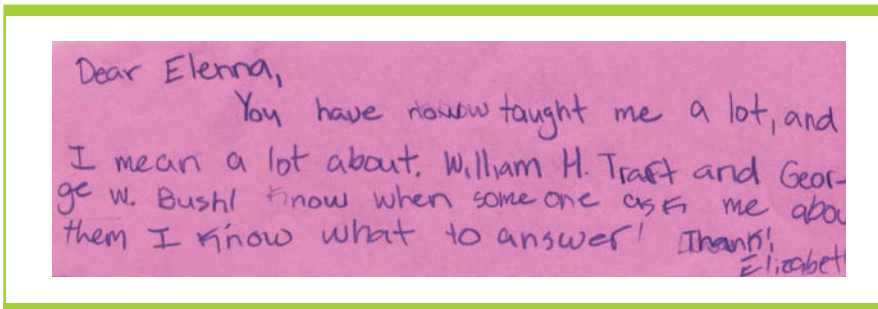 Dear Elenna,
You have taught me a lot, and
I mean a lot about. William H. Traft and Geor-
ge W. Bush! Know when some one ask me abou
them I know what to answer! Thank!
Elizabet